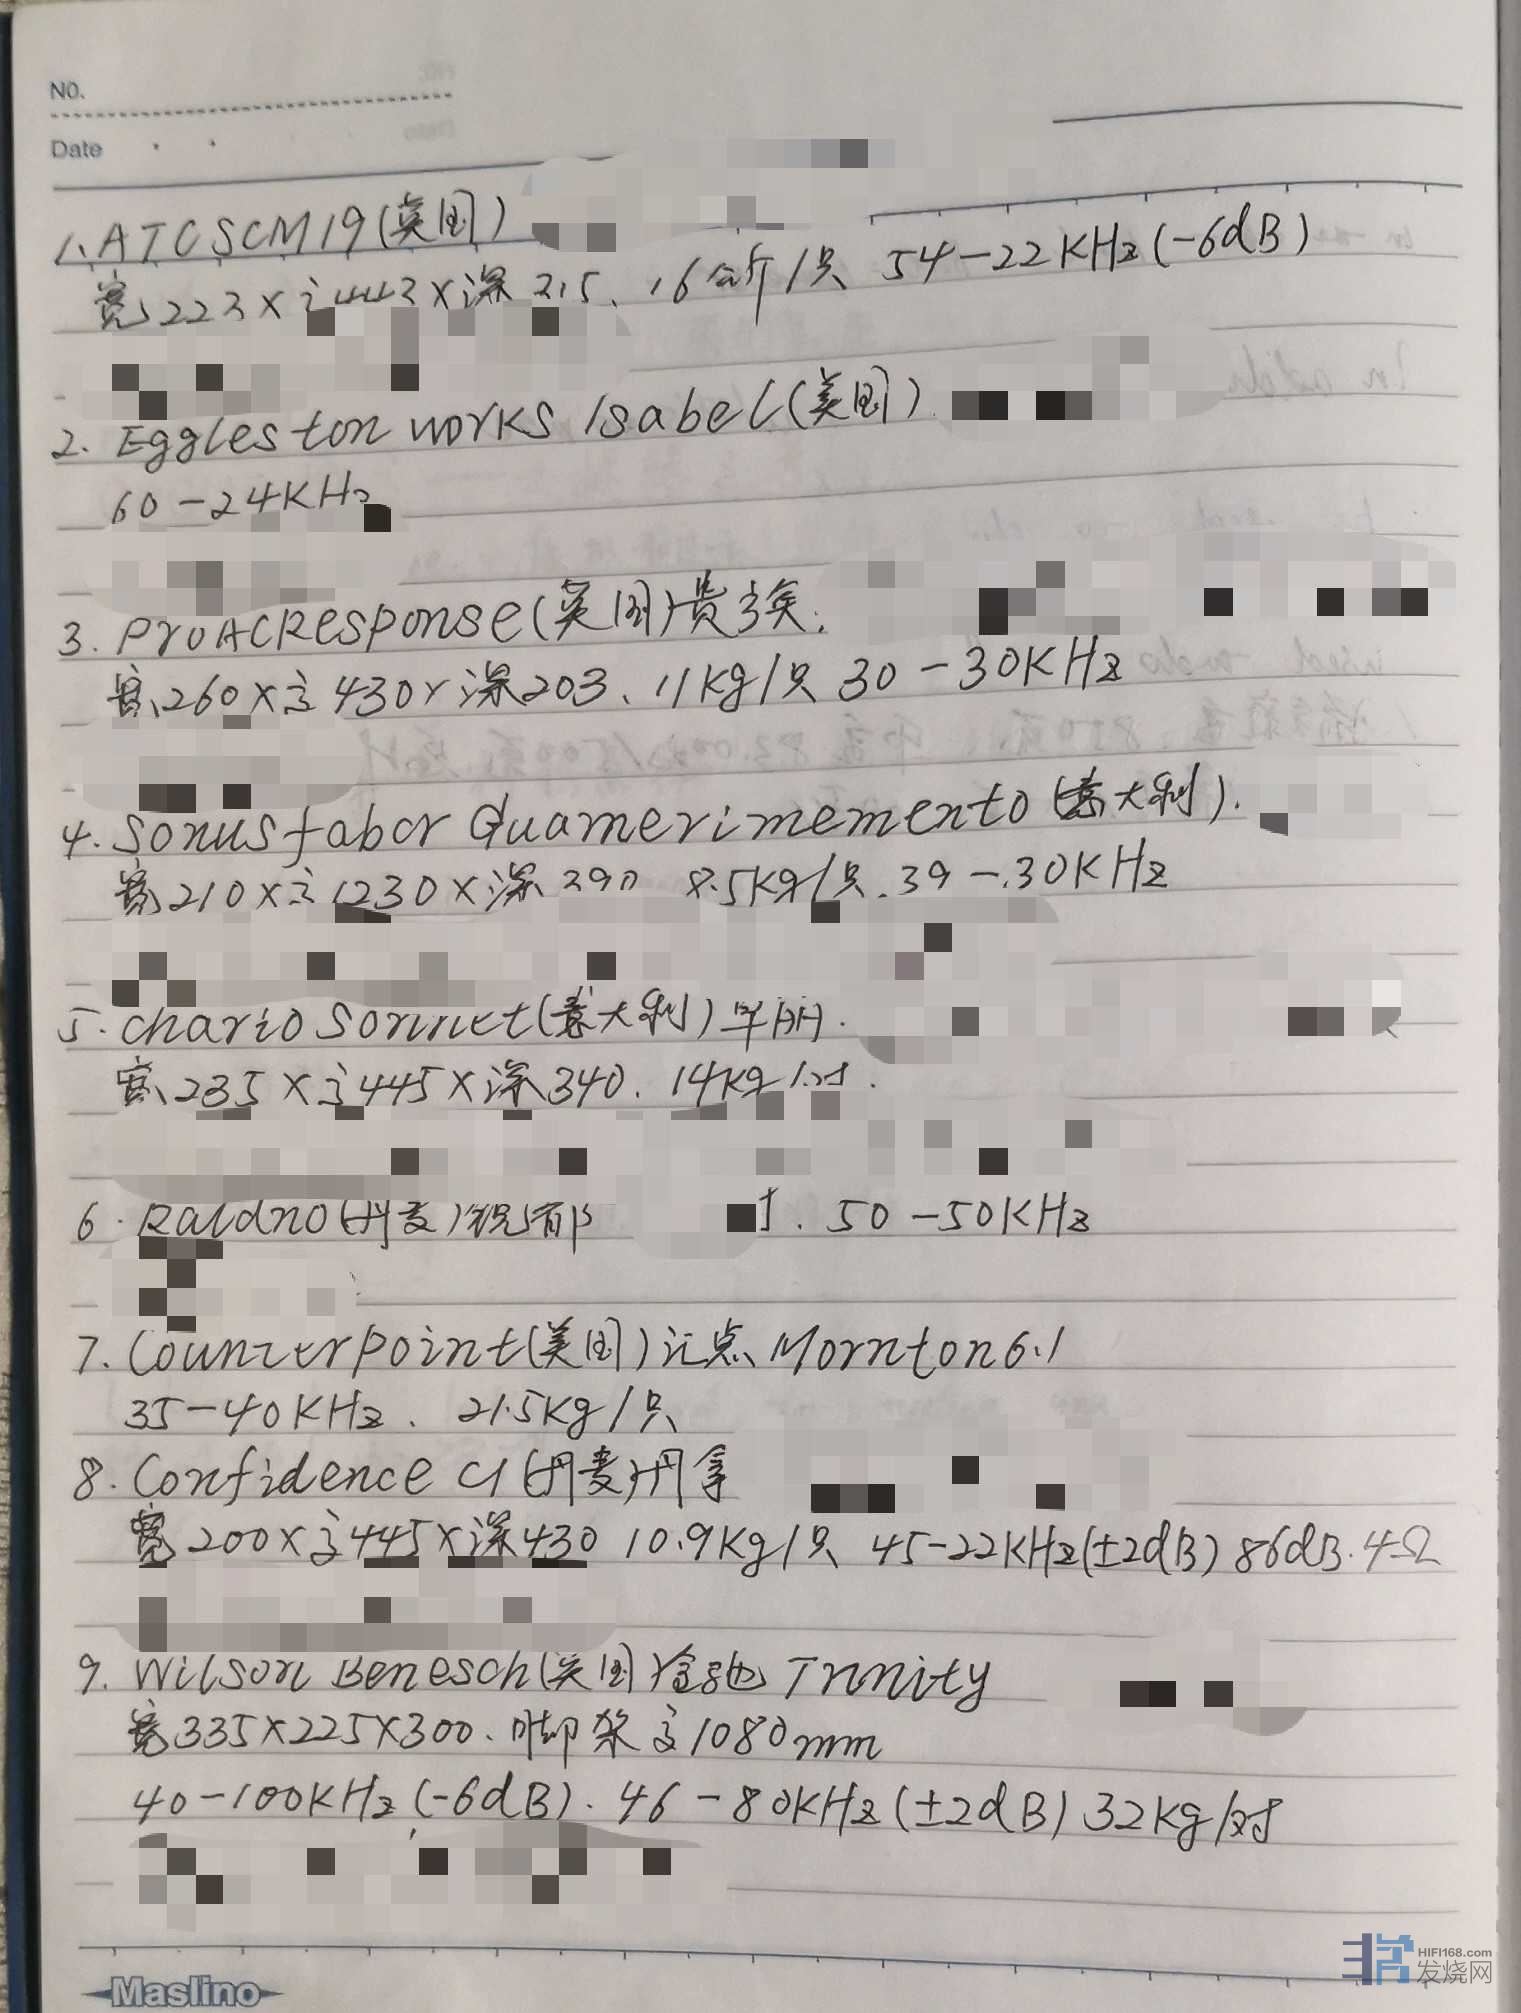 NO.
Date
1. ATC SCM19(英国)
宽223×高443×深215、16公斤/只 54-22KHz(-6dB)
2. Eggleston works Isabel(美国).
60-24KHz
3. ProACResponse(英国)贵族.
宽260×高430×深203、11kg/只 30-30KHz
4. Sonus faber Guamerimemento(意大利).
宽210×高1230×深390 8.5kg/只.39-30KHz
5. chario Sonnet(意大利)卓丽.
宽235×高445×深340. 14kg/对.
6. Raldno(丹麦) 50-50KHz
7. Counterpoint(美国)汇点 Mornton6.1
35-40KHz. 21.5kg/只
8. Confidence C1(丹麦)丹拿
宽200×高445×深430 10.9Kg/只 45-22KHz(±2dB) 86dB.4Ω
9. Wilson Benesch(英国) Trinity
宽335×225×300.脚架高1080mm
40-100KHz(-6dB). 46-80KHz(±2dB) 32kg/对
Maslino
HIFI168.com
发烧网